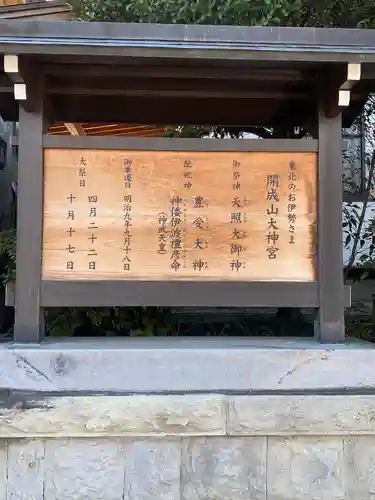 東北のお伊勢さま
開成山大神宮
御祭神 天照大御神
配祀神 豊受大神
神倭伊波禮彦命
(神武天皇)
御鎮座日 明治九年九月十八日
大祭日 四月二十二日
十月十七日